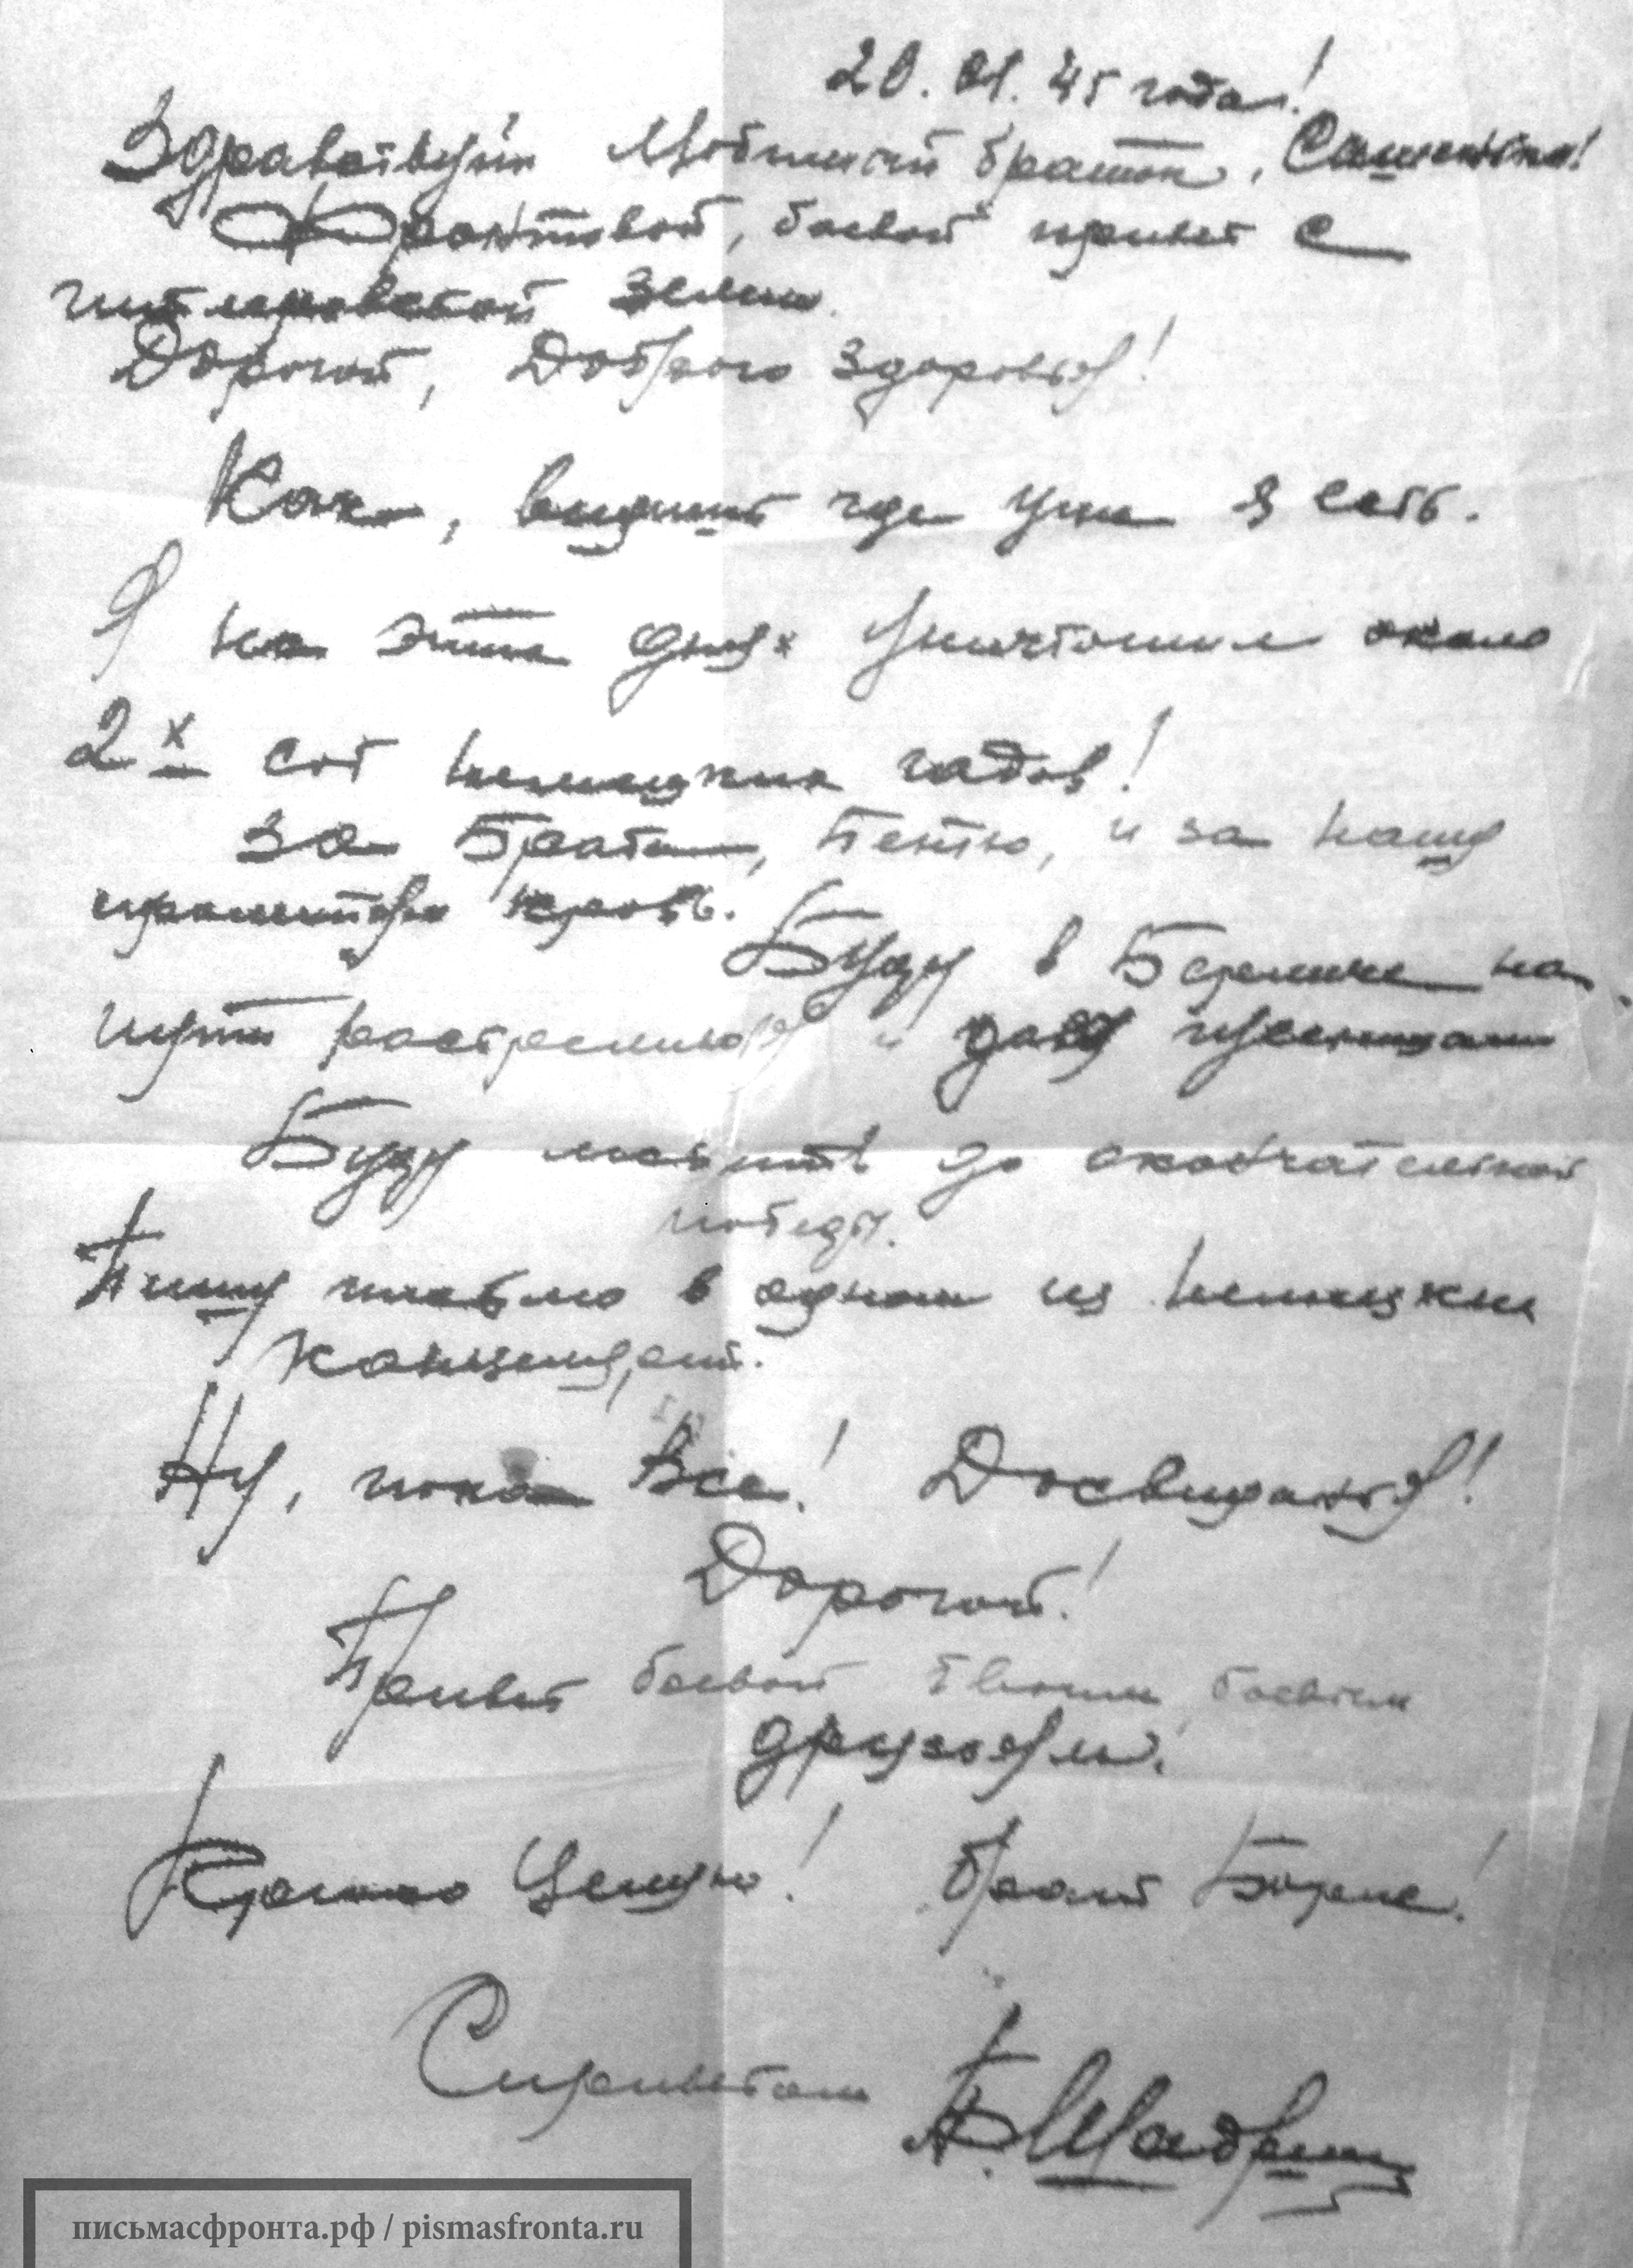 20.01.45 года!
Здравствуй Любимый браток, Сашенька!
Фронтовой, боевой привет с
гитлеровской земли.
Дорогой, Доброго здоровья!
Как, видишь где уже я есть.
Я на этих днях уничтожил около
2х сот немецких гадов!
за Брата, Петю, и за нашу
пролитую кровь.
Буду в Берлине на
пути расстреливая и давя
Буду мстить до окончательной
победы.
Пишу письмо в одном из немецких
Ну, пока Все! Досвиданья!
Дорогой!
Привет боевой твоим боевым
друзьям.
Крепко Целую! брат Борис!
Сприветом Б. Шадрин
письмасфронта.рф / pismasfronta.ru